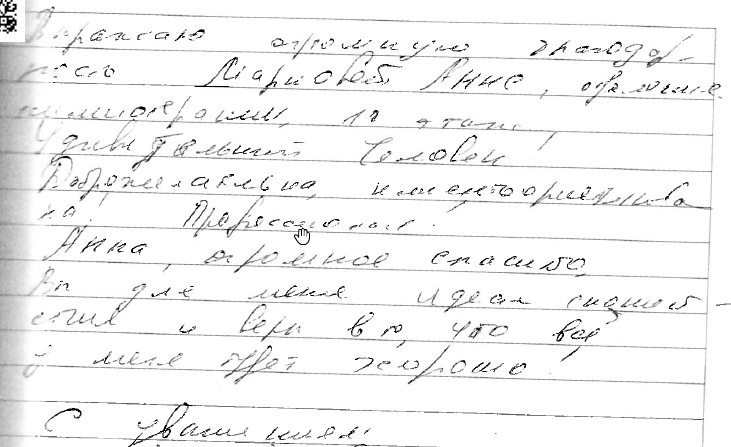 Выражаю огромную благодар-
ность Марковой Анне, отделение
иммиграции, 12 этаж,
Удивительный человек
Доброжелательна, клиентоориентирова
на. Профессионал.
Анна, огромное спасибо,
Вы для меня идеал
и веры в то, что всё
у меня будет хорошо!
С уважением: